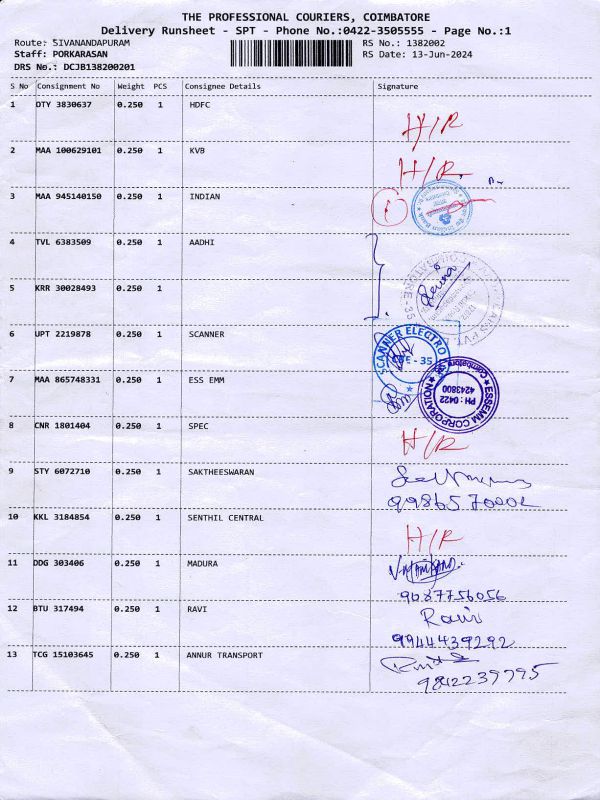 THE PROFESSIONAL COURIERS, COIMBATORE
Delivery Runsheet - SPT - Phone No.:0422-3505555 - Page No.:1
Route: SIVANANDAPURAM RS No.: 1382002
Staff: PORKARASAN RS Date: 13-Jun-2024
DRS No.: DCJB138200201
S No Consignment No Weight PCS Consignee Details Signature
1 OTY 3830637 0.250 1 HDFC
H/R
2 MAA 100629101 0.250 1 KVB
H/R
3 MAA 945140150 0.250 1 INDIAN
4 TVL 6383509 0.250 1 AADHI
5 KRR 30028493 0.250 1
6 UPT 2219878 0.250 1 SCANNER
SCANNER ELECTRO
CBE - 35
7 MAA 865748331 0.250 1 ESS EMM
ESSEMM CORPORATION
PH : 0422
4243800
Coimbatore
8 CNR 1801404 0.250 1 SPEC
H/R
9 STY 6072710 0.250 1 SAKTHEESWARAN
10 KKL 3184854 0.250 1 SENTHIL CENTRAL
H/R
11 DDG 303406 0.250 1 MADURA
9087756056
12 BTU 317494 0.250 1 RAVI
Ravi
9944439292
13 TCG 15103645 0.250 1 ANNUR TRANSPORT
9842239795